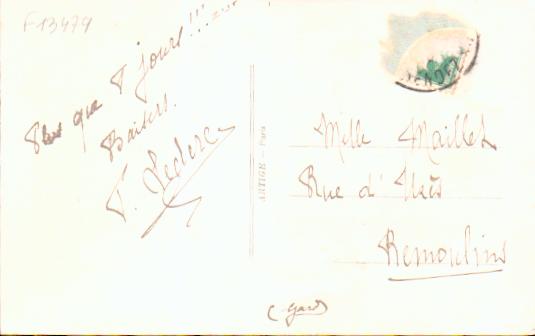 F13479
Plus que 8 jours!!!
Baisers.
P. Leclerc
ARTIGE - Paris
Mlle Maillet
Rue d'Uzès
Remoulins
(Gard)